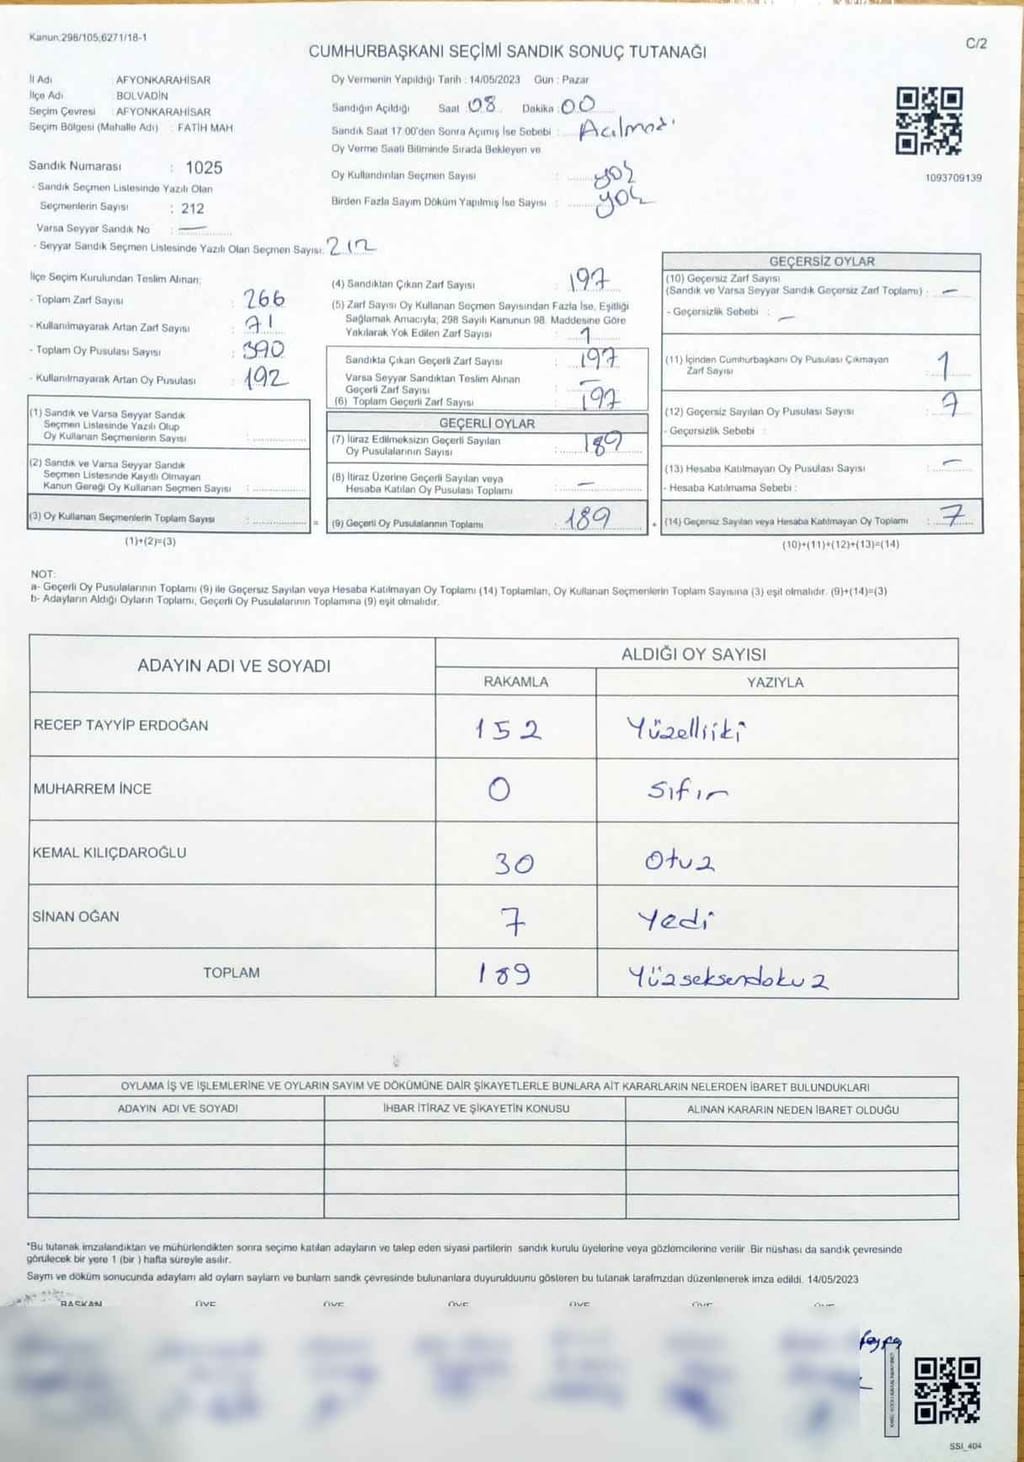 Kanun:298/105;6271/18-1
C/2
CUMHURBAŞKANI SEÇİMİ SANDIK SONUÇ TUTANAĞI
İl Adı AFYONKARAHİSAR
İlçe Adı BOLVADİN
Seçim Çevresi AFYONKARAHİSAR
Seçim Bölgesi (Mahalle Adı) : FATİH MAH.
Sandık Numarası : 1025
- Sandık Seçmen Listesinde Yazılı Olan
Seçmenlerin Sayısı : 212
Varsa Seyyar Sandık No : —
- Seyyar Sandık Seçmen Listesinde Yazılı Olan Seçmen Sayısı: 212
Oy Vermenin Yapıldığı Tarih : 14/05/2023 Gün : Pazar
Sandığın Açıldığı Saat 08 Dakika : 00
Sandık Saat 17.00'den Sonra Açımış İse Sebebi : Açılmadı
Oy Verme Saati Bitiminde Sırada Bekleyen ve
Oy Kullandırılan Seçmen Sayısı : yok
Birden Fazla Sayım Döküm Yapılmış İse Sayısı : yok
1093709139
İlçe Seçim Kurulundan Teslim Alınan;
- Toplam Zarf Sayısı : 266
- Kullanılmayarak Artan Zarf Sayısı : 71
- Toplam Oy Pusulası Sayısı : 390
- Kullanılmayarak Artan Oy Pusulası : 192
(1) Sandık ve Varsa Seyyar Sandık
Seçmen Listesinde Yazılı Olup
Oy Kullanan Seçmenlerin Sayısı :
(2) Sandık ve Varsa Seyyar Sandık
Seçmen Listesinde Kayıtlı Olmayan
Kanun Gereği Oy Kullanan Seçmen Sayısı :
(3) Oy Kullanan Seçmenlerin Toplam Sayısı :
(1)+(2)=(3)
(4) Sandıktan Çıkan Zarf Sayısı : 197
(5) Zarf Sayısı Oy Kullanan Seçmen Sayısından Fazla İse, Eşitliği
Sağlamak Amacıyla, 298 Sayılı Kanunun 98. Maddesine Göre
Yakılarak Yok Edilen Zarf Sayısı : 1
Sandıkta Çıkan Geçerli Zarf Sayısı : 197
Varsa Seyyar Sandıktan Teslim Alınan
Geçerli Zarf Sayısı : —
(6) Toplam Geçerli Zarf Sayısı : 197
GEÇERLİ OYLAR
(7) İtiraz Edilmeksizin Geçerli Sayılan
Oy Pusulalarının Sayısı : 189
(8) İtiraz Üzerine Geçerli Sayılan veya
Hesaba Katılan Oy Pusulası Toplamı : —
(9) Geçerli Oy Pusulalarının Toplamı : 189
GEÇERSİZ OYLAR
(10) Geçersiz Zarf Sayısı
(Sandık ve Varsa Seyyar Sandık Geçersiz Zarf Toplamı) : —
- Geçersizlik Sebebi : —
(11) İçinden Cumhurbaşkanı Oy Pusulası Çıkmayan
Zarf Sayısı : 1
(12) Geçersiz Sayılan Oy Pusulası Sayısı : 7
- Geçersizlik Sebebi :
(13) Hesaba Katılmayan Oy Pusulası Sayısı : —
- Hesaba Katılmama Sebebi :
(14) Geçersiz Sayılan veya Hesaba Katılmayan Oy Toplamı : 7
(10)+(11)+(12)+(13)=(14)
NOT:
a- Geçerli Oy Pusulalarının Toplamı (9) ile Geçersiz Sayılan veya Hesaba Katılmayan Oy Toplamı (14) Toplamları, Oy Kullanan Seçmenlerin Toplam Sayısına (3) eşit olmalıdır. (9)+(14)=(3)
b- Adayların Aldığı Oyların Toplamı, Geçerli Oy Pusulalarının Toplamına (9) eşit olmalıdır.
ADAYIN ADI VE SOYADI ALDIĞI OY SAYISI
RAKAMLA YAZIYLA
RECEP TAYYİP ERDOĞAN 152 Yüzelliiki
MUHARREM İNCE 0 Sıfır
KEMAL KILIÇDAROĞLU 30 Otuz
SİNAN OĞAN 7 Yedi
TOPLAM 189 Yüzseksendokuz
OYLAMA İŞ VE İŞLEMLERİNE VE OYLARIN SAYIM VE DÖKÜMÜNE DAİR ŞİKAYETLERLE BUNLARA AİT KARARLARIN NELERDEN İBARET BULUNDUKLARI
ADAYIN ADI VE SOYADI İHBAR İTİRAZ VE ŞİKAYETİN KONUSU ALINAN KARARIN NEDEN İBARET OLDUĞU
*Bu tutanak imzalandıktan ve mühürlendikten sonra seçime katılan adayların ve talep eden siyasi partilerin sandık kurulu üyelerine veya gözlemcilerine verilir. Bir nüshası da sandık çevresinde
görülecek bir yere 1 (bir ) hafta süreyle asılır.
Sayım ve döküm sonucunda adaylarn ald oylarn saylarn ve bunlarn sandk çevresinde bulunanlara duyurulduunu gösteren bu tutanak tarafmzdan düzenlenerek imza edildi. 14/05/2023
BAŞKAN ÜYE ÜYE ÜYE ÜYE ÜYE ÜYE
SSI_404